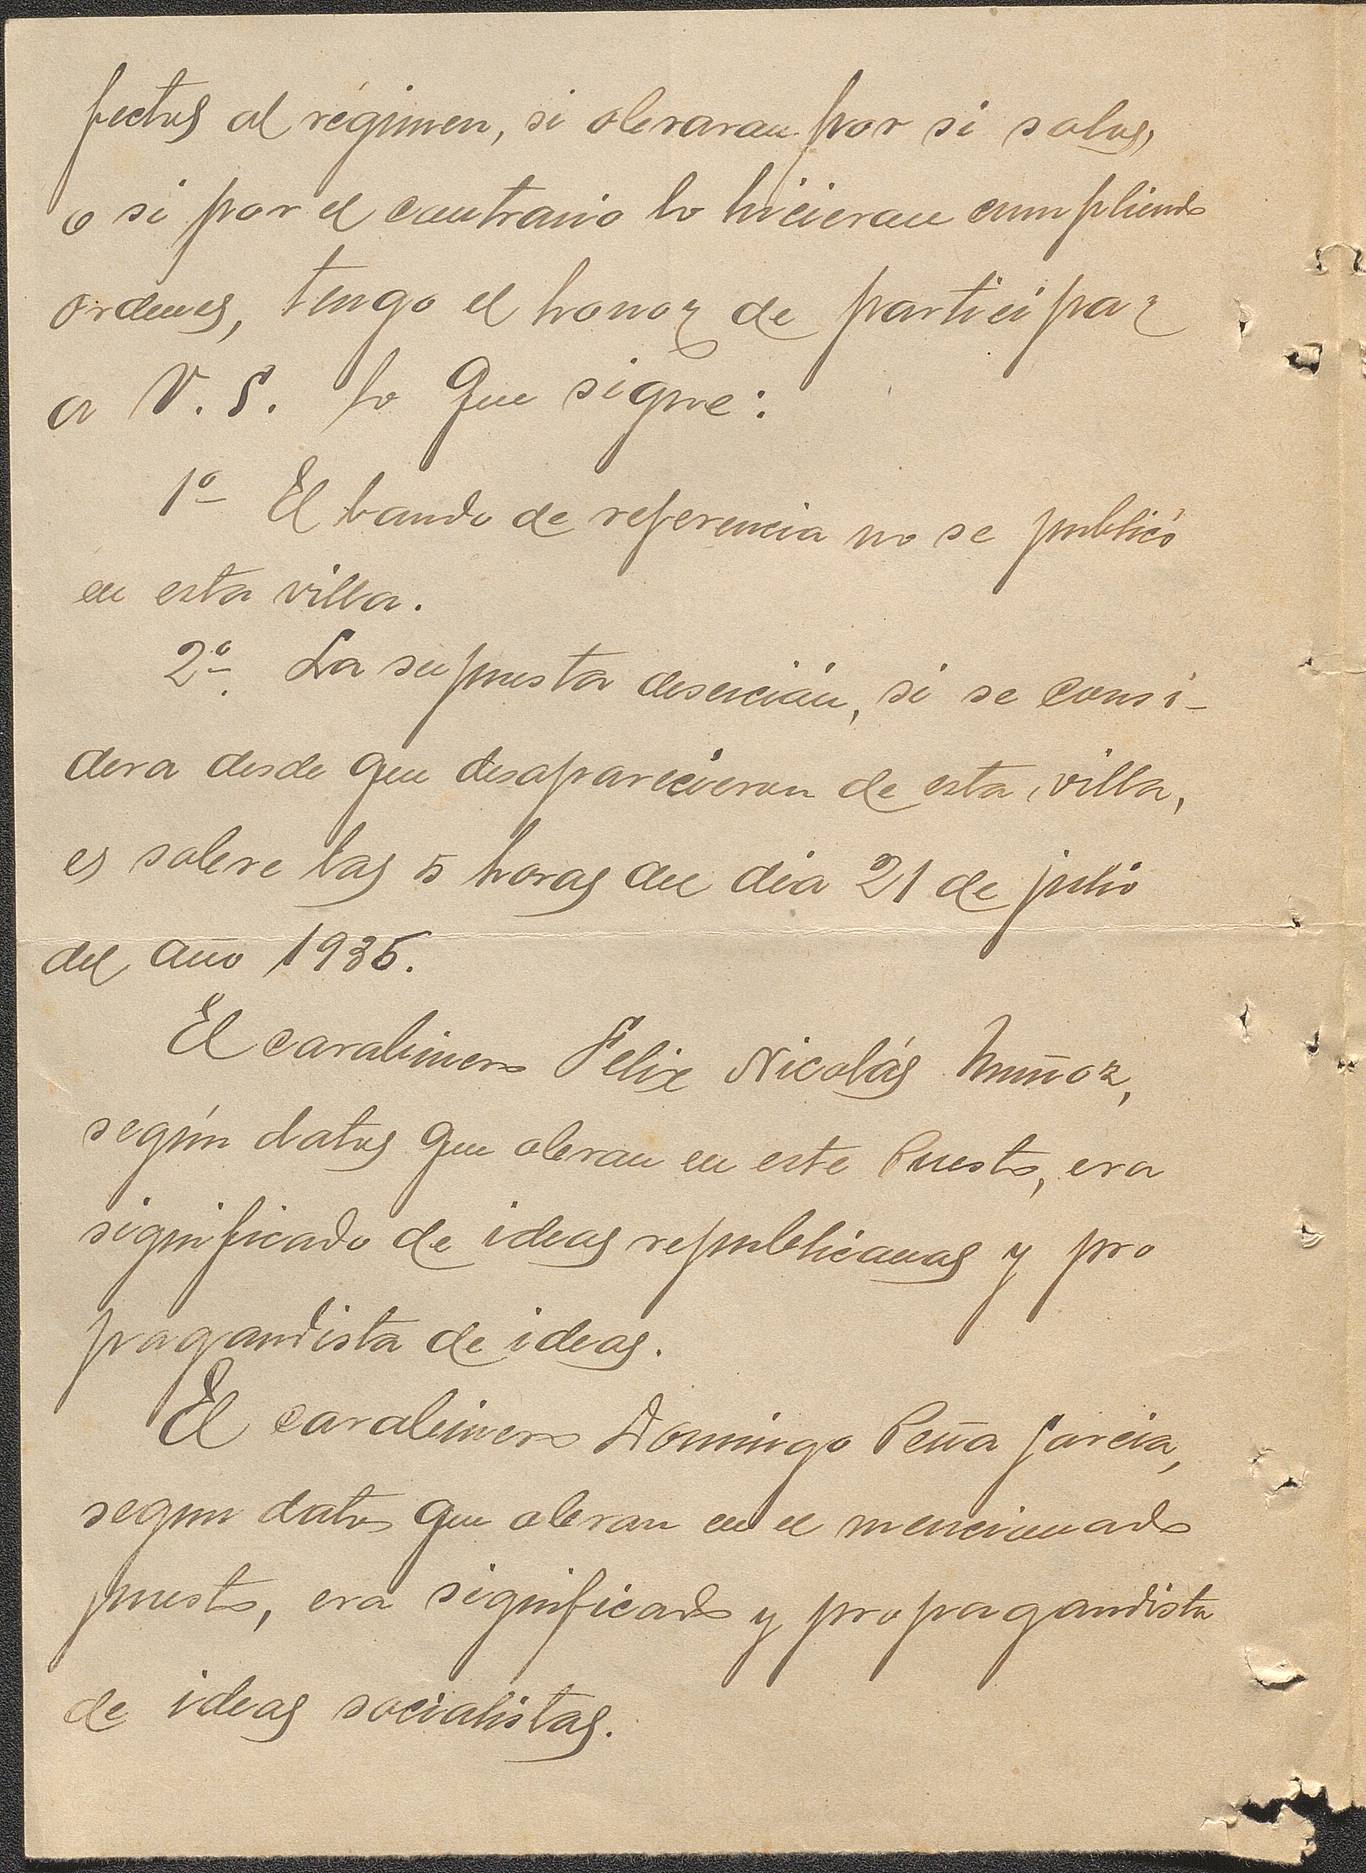 fectos al régimen, si obraran por si solos,
o si por el contrario lo hicieran cumpliendo
ordenes, tengo el honor de participar
a V. S. lo que sigue:
1º El bando de referencia no se publicó
en esta villa.
2º. La supuesta deserción, si se consi-
dera desde que desaparecieron de esta villa,
es sobre las 5 horas del dia 21 de julio
del año 1936.
El carabinero Felix Nicolás Muñoz,
según datos que obran en este Puesto, era
significado de ideas republicanas y pro
pagandista de ideas.
El carabinero Domingo Peña Garcia,
segun datos que obran en el mencionado
puesto, era significado y propagandista
de ideas socialistas.